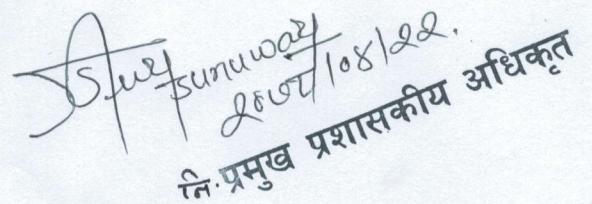 sunuwar
/०४/२२.
नि. प्रमुख प्रशासकीय अधिकृत